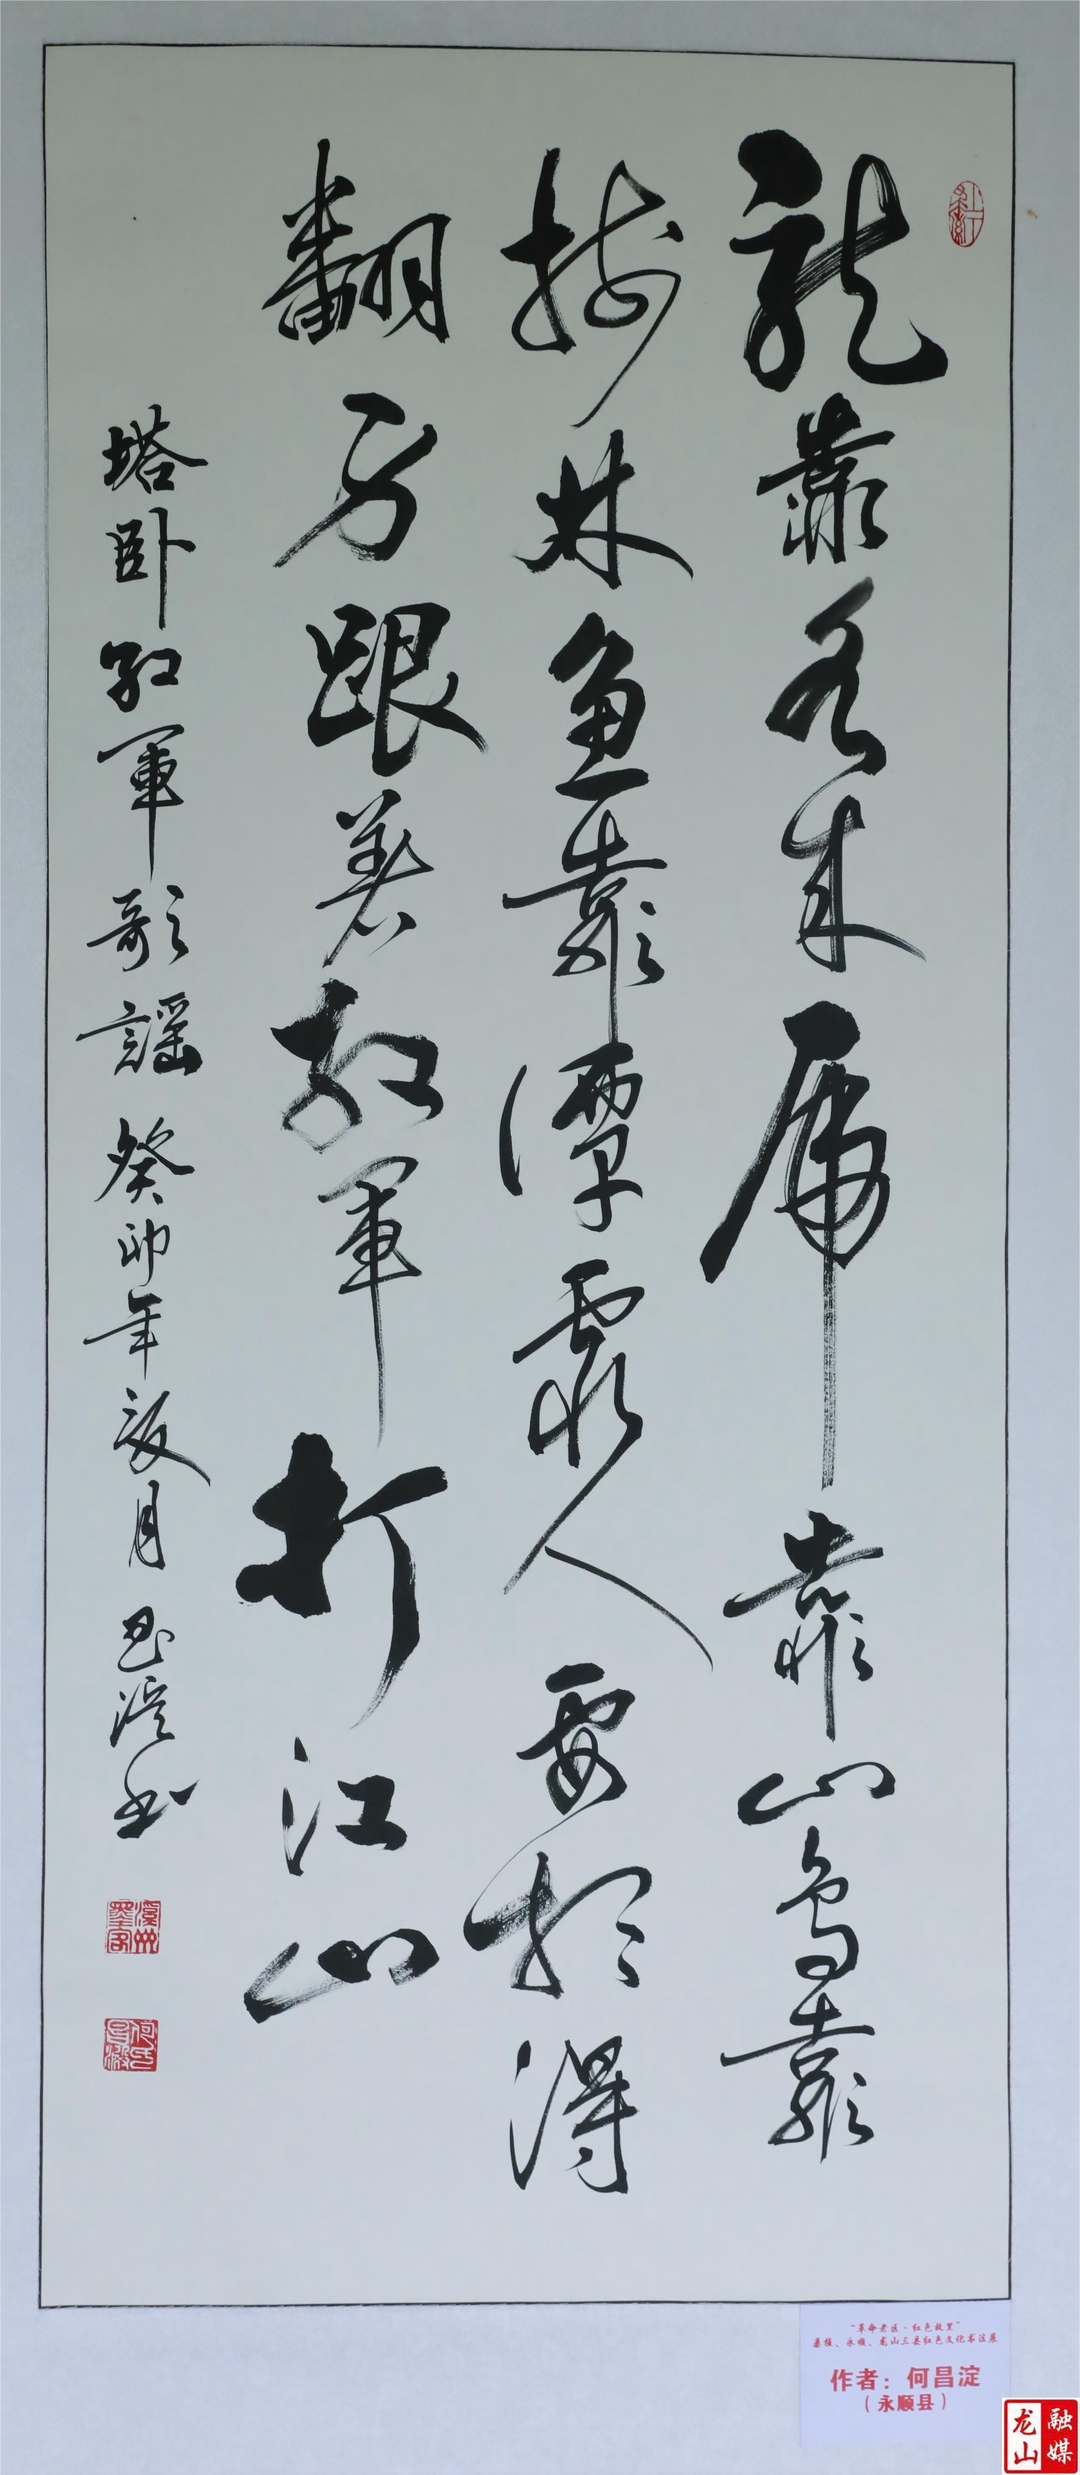 龍靠来虎靠山鳥靠
樹林魚靠潭窮人要想得
翻身跟着紅軍打江山
塔卧紅軍歌謠 癸卯年月 溪书
“革命老区·红色故里”
桑植、永顺、龙山三县红色文化书法展
作者：何昌淀
（永顺县）
龙山
融媒